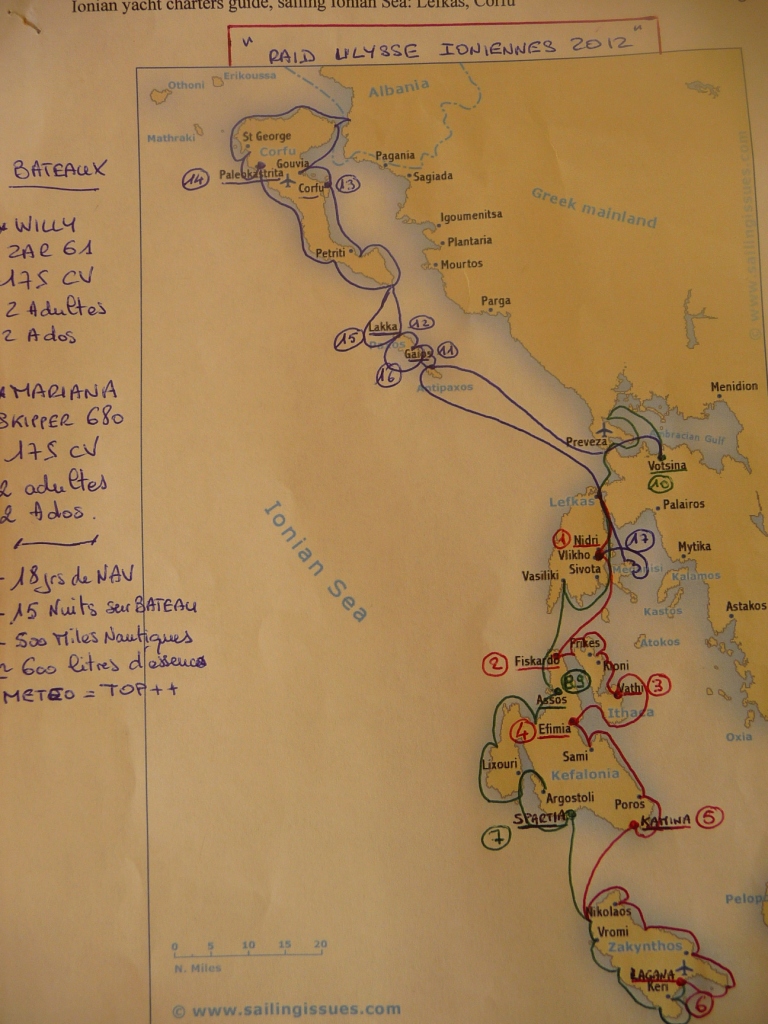 Ionian yacht charters guide, sailing Ionian Sea: Lefkas, Corfu
" RAID ULYSSE IONIENNES 2012 "
BATEAUX
WILLY
ZAR 61
175 CV
2 Adultes
2 Ados
MARIANA
SKIPPER 680
175 CV
2 adultes
2 Ados.
- 18 jrs de NAV
- 15 Nuits sur BATEAU
- 500 Miles Nautiques
600 litres d'essence
METEO = TOP ++
Othoni
Erikoussa
Mathraki
Albania
St George
Corfu
Gouvia
Paleokastrita
14
Corfu
13
Pagania
Sagiada
Greek mainland
Igoumenitsa
Plantaria
Petriti
Mourtos
Parga
Lakka
12
15
Paxos
Gaios
11
16
Antipaxos
Menidion
Preveza
Ambracian Gulf
Votsina
10
Lefkas
Palairos
1
Nidri
17
Vlikho
Mytika
Vasiliki
Sivota
Meganisi
Kalamos
Kastos
Astakos
Ionian Sea
Frikes
Atokos
2
Fiskardo
Kioni
8.9
Vathi
3
Assos
Ithaca
4
Efimia
Oxia
Sami
Lixouri
Kefalonia
Argostoli
Poros
SPARTIA
KAMINA
5
7
Pelop
Nikolaos
Vromi
Zakynthos
LAGANA
Keri
6
0 5 10 15 20
N. Miles
© www.sailingissues.com
© www.sailingissues.com